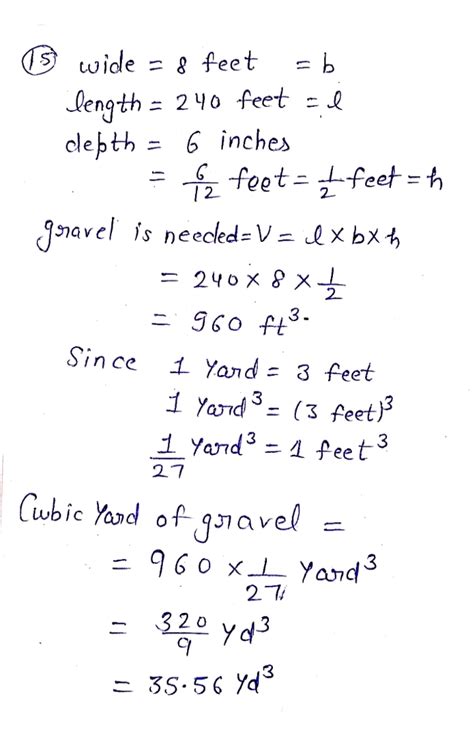 15 wide = 8 feet = b
length = 240 feet = l
depth = 6 inches
= 6/12 feet = 1/2 feet = h
gravel is needed = V = l × b × h
= 240 × 8 × 1/2
= 960 ft³.
Since 1 Yard = 3 feet
1 Yard³ = (3 feet)³
1/27 Yard³ = 1 feet³
Cubic Yard of gravel =
= 960 × 1/27 Yard³
= 320/9 Yd³
= 35.56 Yd³